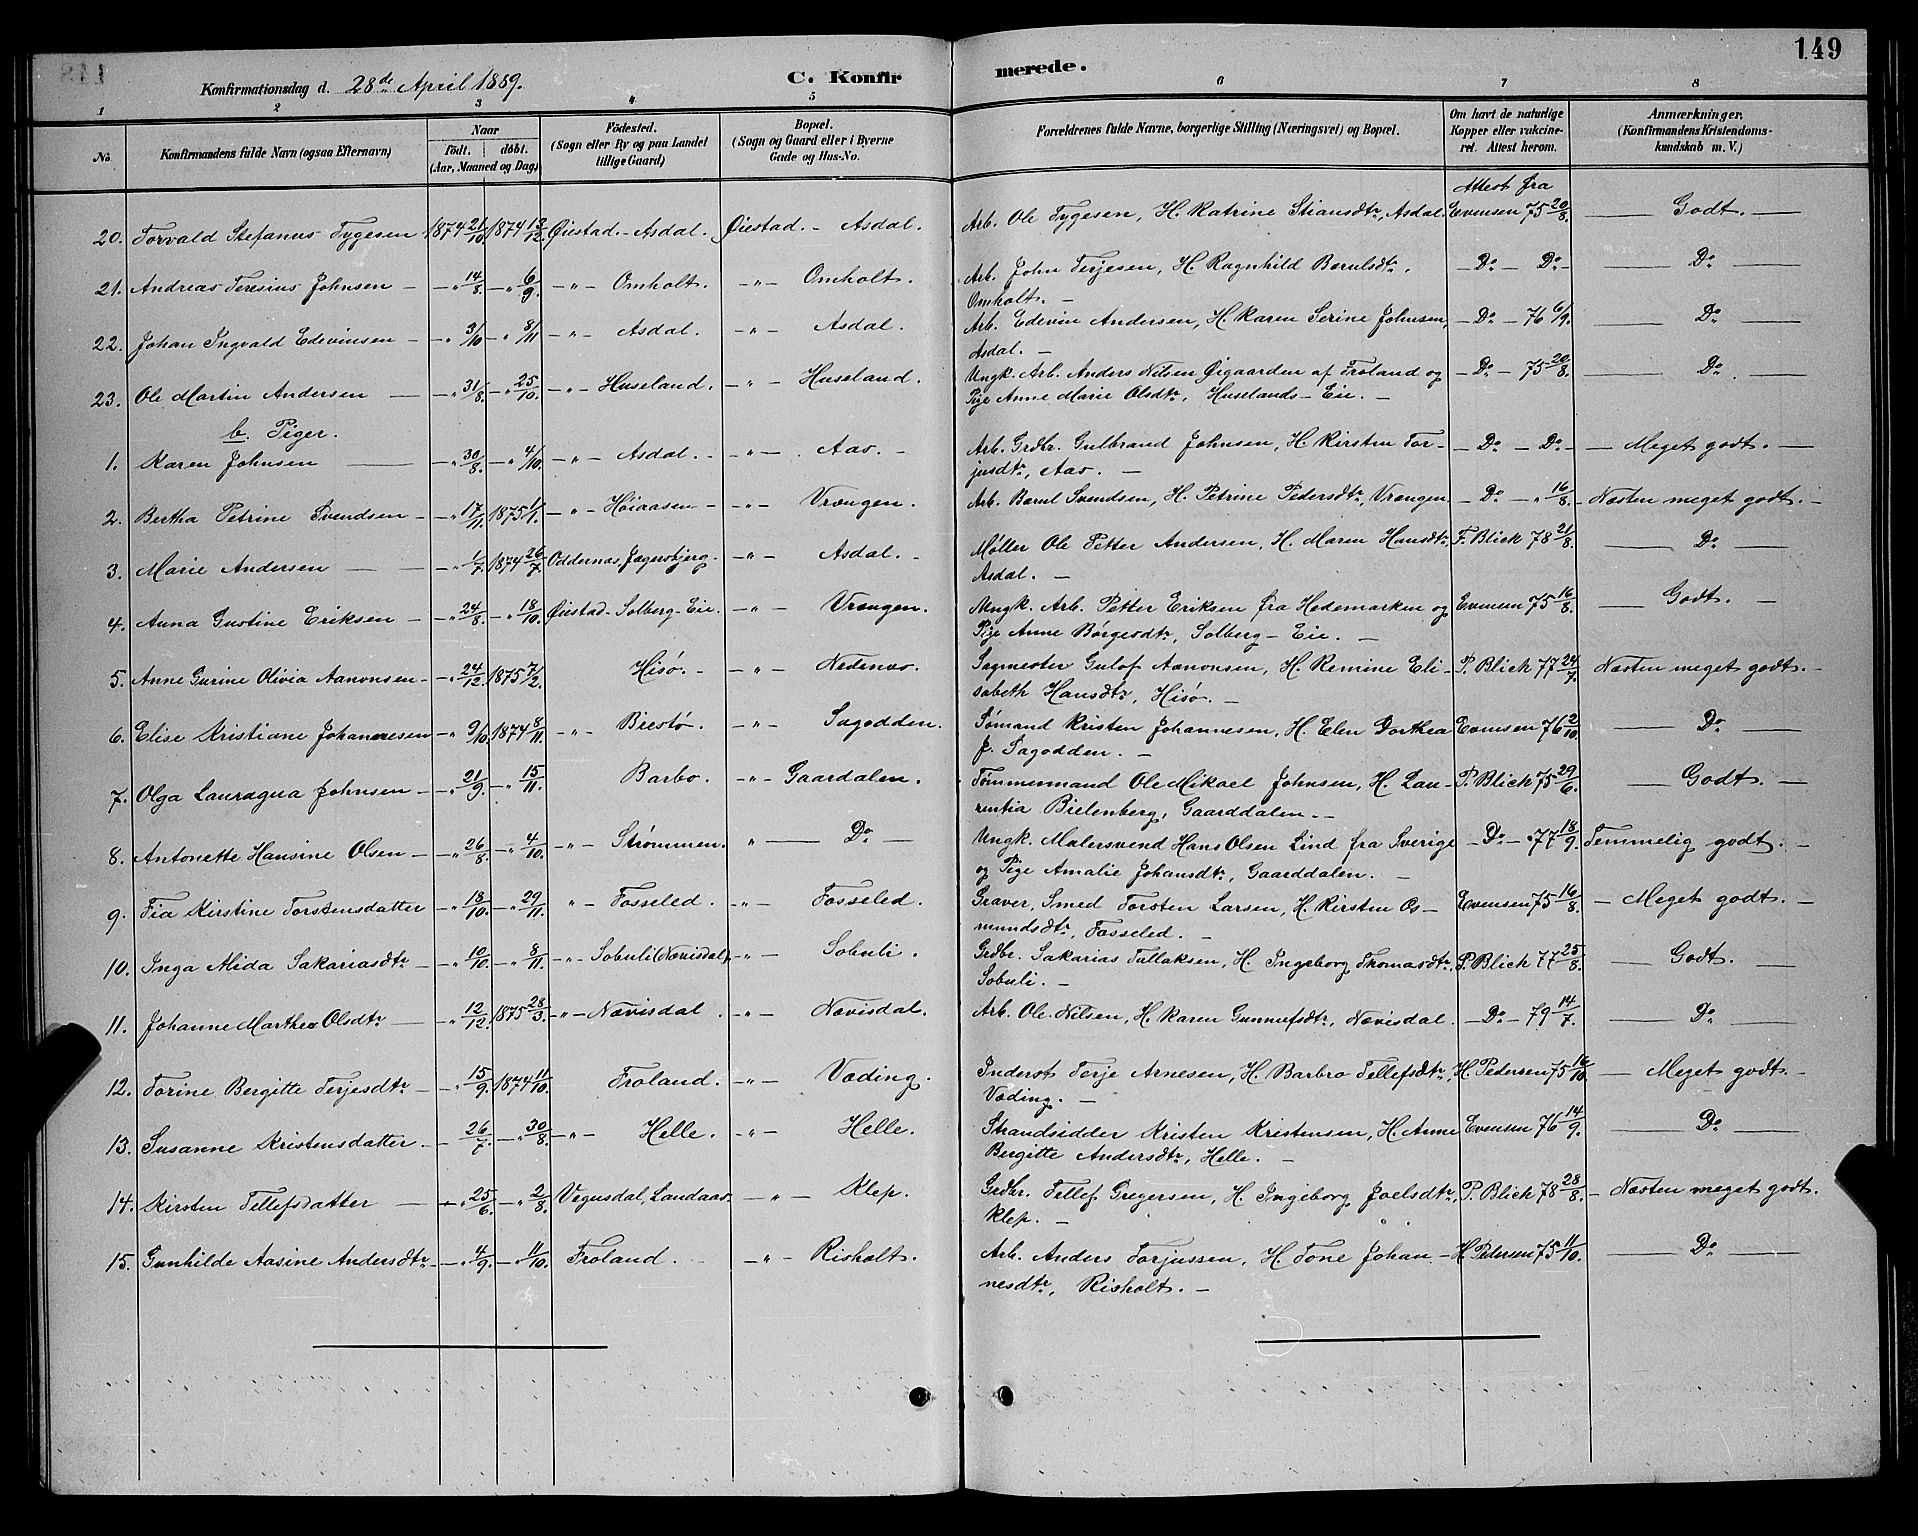 149
Konfirmationsdag d. 28de April 1889.
C. Konfirmerede.
1 2 3 4 5 6 7 8
No. | Konfirmandens fulde Navn (ogsaa Efternavn) | Naar födt. döbt. (Aar, Maaned og Dag) | Födested. (Sogn eller By og paa Landet tillige Gaard) | Bopæl. (Sogn og Gaard eller i Byerne Gade og Hus-No. | Forældrenes fulde Navne, borgerlige Stilling (Næringsvei) og Bopæl. | Om havt de naturlige Kopper eller vakcineret. Attest herom. | Anmærkninger. (Konfirmandens Kristendomskundskab m. V.)
Attest fra
20. Torvald Stefanus Tygesen 1874 21/10. 1874 13/12. Øiestad - Asdal. Øiestad. - Asdal. Arb. Ole Tygesen, H. Katrine Stiansdtr, Asdal. Evensen 75 20/8. — Godt. —
21. Andreas Teresius Johnsen - - " 14/8. - " 6/9. - " - Omholt. - " - Omholt. Arb. John Terjesen, H. Ragnhild Berulsdtr, - Do - Do - — Do —
Omholt. -
22. Johan Ingvald Edevinsen - - " 3/10 - " 8/11 - " - Asdal. - " - Asdal. Arb. Edevin Andersen, H. Karen Serine Johnsen, - Do - 76 6/9. — Do —
Asdal. -
23. Ole Martin Andersen — - " 31/8. - " 25/10. - " - Huseland. - " - Huseland. Ungk. Arb. Anders Nilsen Øigaarden af Froland og - Do - 75 20/8. — Do. —
Pige Anne Marie Olsdtr, Huselands-Eie. -
b. Piger.
1. Karen Johnsen — - " 30/8. - " 4/10. - " - Asdal. - - " - Aas. - Arb. Grdbr. Gulbrand Johnsen, H. Kirsten Tor- - Do - Do - — Meget godt. —
jusdtr, Aas. -
2. Bertha Petrine Svendsen - - " 17/11. 1875 1/1. - " - Høiaasen - - " - Vrængen. Arb. Berul Svendsen, H. Petrine Pedersdtr, Vrængen - Do - " 16/8. - Næsten meget godt. -
3. Marie Andersen — - " 1/7. 1874 26/7. Oddernes, Jegersbjerg. - " - Asdal. - Møller Ole Petter Andersen, H. Maren Hansdtr, F. Blick 78 21/8. — Do —
Asdal. -
4. Anna Gustine Eriksen - - " 24/8. - " 18/10. Øiestad - Solberg-Eie. - " - Vrængen. Ungk. Arb. Petter Eriksen fra Hedemarken og Evensen 75 16/8. — Godt. -
Pige Anne Børgesdtr, Solberg-Eie. -
5. Anne Gurine Olivia Aanonsen - - " 24/12. 1875 7/2. Hisø. - - " - Nedenæs. Sagmester Gulof Aanonsen, H. Remine Eli- P. Blick 77 24/7. Næsten meget godt. -
sabeth Hansdtr, Hisø. -
6. Elise Kristiane Johannesen - " 9/10. 1874 8/11. - " - Biestø. - " - Sagodden. Sømand Kristen Johannesen, H. Elen Dorthea Evensen 76 2/10. — Do —
p. Sagodden. -
7. Olga Lauragua Johnsen - - " 21/9. - " 15/11. Barbo. - " - Gaardalen. Tømmermand Ole Mikael Johnsen, H. Lau- P. Blick 75 29/6. — Godt. -
rentia Bielenberg, Gaarddalen. -
8. Antonette Hansine Olsen - - " 26/8. - " 4/10. - " - Strømmen. " — Do — Ungk. Malersvend Hans Olsen Lind fra Sverige - Do - 77 18/9. Temmelig godt. -
og Pige Amalie Johansdtr, Gaarddalen. -
9. Fia Kirstine Torstensdatter - " 18/10. - " 29/11. " - Fosseled. - " - Fosseled. Graver, Smed Torsten Larsen, H. Kirsten Os- Evensen 75 16/8. - Meget godt. -
mundsdtr, Fosseled. -
10. Inga Alida Sakariasdtr - - " 10/10. - " 8/11. - " - Sobuli (Nævisdal). - " - Sobuli. Grdbr. Sakarias Tallaksen, H. Ingeborg Thomasdtr, P. Blick 77 25/8. — Godt. —
Sobuli. -
11. Johanne Marthea Olsdtr - - " 12/12. 1875 28/3. - " - Nævisdal. - " - Nævisdal. Arb. Ole Nilsen, H. Karen Gunnufsdtr, Nævisdal. - Do - 79 14/7. — Do —
12. Torine Bergitte Terjesdtr - - " 15/9. 1874 11/10. Froland. - " - Væding. Inderst Terje Arnesen, H. Barbro Tellefsdtr, H. Pedersen 75 16/10. - Meget godt. -
Væding. -
13. Susanne Kristensdatter - - 26/7. - " 30/8. - " - Helle. - " - Helle. Strandsidder Kristen Kristensen, H. Anne Evensen 76 14/9. — Do —
Bergitte Andersdtr, Helle. -
14. Kirsten Tellefsdatter — - " 25/6. - " 2/8. Vegusdal, Landaas. - " - Klep. Grdbr. Tellef Gregersen, H. Ingeborg Joelsdtr, P. Blick 78 28/8. - Næsten meget godt.
Klep. -
15. Gunhilde Aasine Andersdtr - - " 4/9. - " 11/10. Froland. - " - Risholt. Arb. Anders Torjussen, H. Tone Johan- H. Pedersen 75 11/10. — Do —
nesdtr, Risholt. -